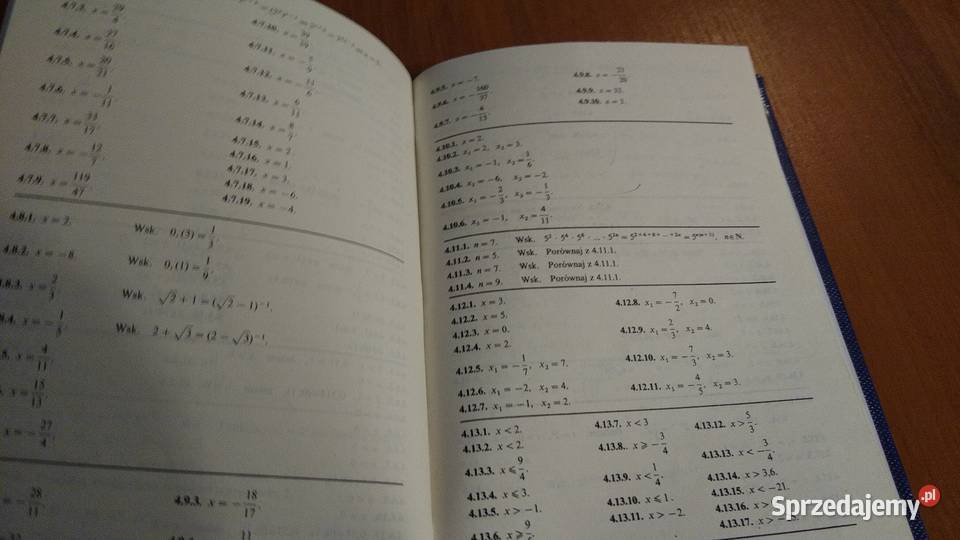 4.7.3. x =
4.7.4. x = 27/16
4.7.5. x = 20/21
4.7.6. x = −1/11
4.7.7. x = 31/17
4.7.8. x = −12/7
4.7.9. x = 119/47
4.7.10. x = 39/19
4.7.11. x =
4.7.12. x = −11/6
4.7.13. x = 6/11
4.7.14. x = 8/7
4.7.15. x = 2.
4.7.16. x = 1.
4.7.17. x = 3.
4.7.18. x = −6.
4.7.19. x = −4.
4.8.1. x = 3. Wsk. 0,(3) = 1/3.
4.8.2. x = −8. Wsk. 0,(1) = 1/9.
4.8.3. x = 2/3. Wsk. √2 + 1 = (√2 − 1)⁻¹.
Wsk. 2 + √3 = (2 − √3)⁻¹.
x = 4/11.
x = 15/13.
x = −27/4.
= −28/11
4.9.3. x = −18/17.
4.9.5. x = −7.
4.9.6. x = −160/37
4.9.7. x = −4/13.
4.9.8. x = −21/20
4.9.9. x = 32.
4.9.10. x = 2.
4.10.1. x = 2.
4.10.2. x₁ = 2, x₂ = 3.
4.10.3. x₁ = −1, x₂ = 1/6.
4.10.4. x₁ = −6, x₂ = −2.
4.10.5. x₁ = −2/3, x₂ = −1/3.
4.10.6. x₁ = −1, x₂ = 4/11.
4.11.1. n = 7. Wsk. 5² · 5⁴ · 5⁶ · ... · 5²ⁿ = 5²⁺⁴⁺⁶⁺ ··· ⁺²ⁿ = 5ⁿ⁽ⁿ⁺¹⁾, n∈N.
4.11.2. n = 5. Wsk. Porównaj z 4.11.1.
4.11.3. n = 7. Wsk. Porównaj z 4.11.1.
4.11.4. n = 9. Wsk. Porównaj z 4.11.1.
4.12.1. x = 3.
4.12.2. x = 5.
4.12.3. x = 0.
4.12.4. x = 2.
4.12.5. x₁ = −1/7, x₂ = 7.
4.12.6. x₁ = −2, x₂ = 4.
4.12.7. x₁ = −1, x₂ = 2.
4.12.8. x₁ = −7/2, x₂ = 0.
4.12.9. x₁ = 2/3, x₂ = 4.
4.12.10. x₁ = −7/3, x₂ = 3.
4.12.11. x₁ = −4/5, x₂ = 3.
4.13.1. x < 2.
4.13.2. x < 2.
4.13.3. x ⩽ 9/4.
4.13.4. x ⩽ 3.
4.13.5. x > −1.
4.13.6. x ⩾ 9/
4.13.7. x < 3
4.13.8. x ⩾ −3/4
4.13.9. x < 1/4.
4.13.10. x ⩽ 1.
4.13.11. x > −2.
4.13.12. x > 5/3.
4.13.13. x < −3/4.
4.13.14. x > 3,6.
4.13.15. x < −21.
4.13.16. x >
4.13.17. x >
Sprzedajemy.pl